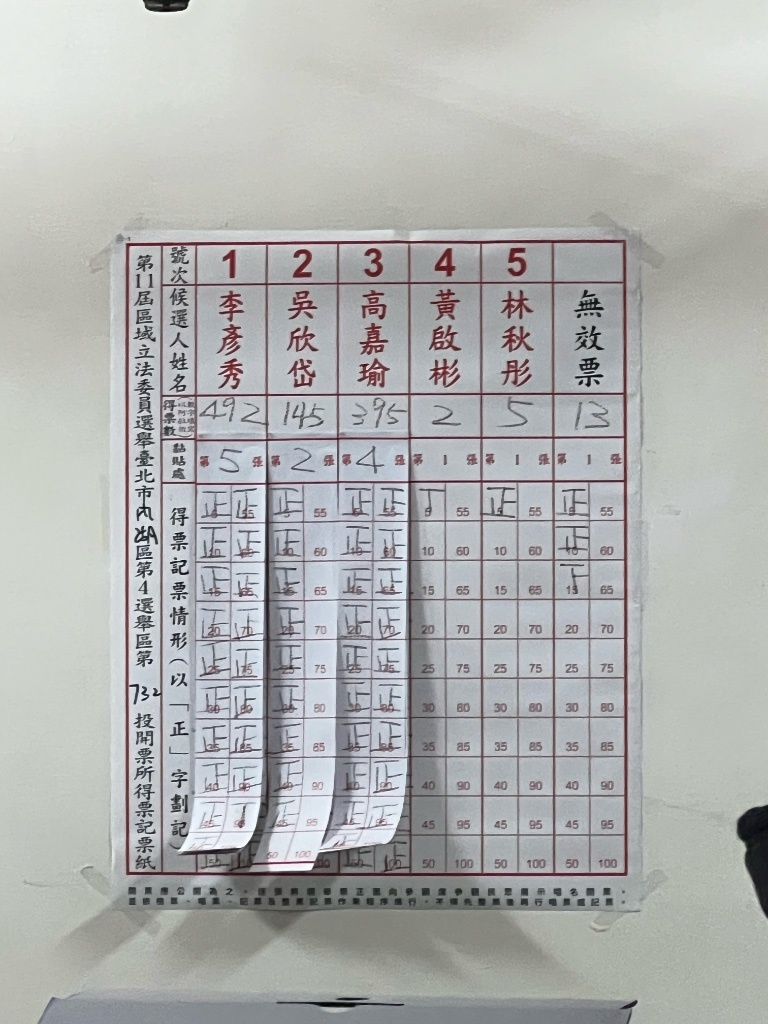 第11屆區域立法委員選舉臺北市內湖區第4選舉區第732投開票所得票記票紙
號次 1 2 3 4 5
候選人姓名 李彥秀 吳欣岱 高嘉瑜 黃啟彬 林秋彤 無效票
得票數 492 145 395 2 5 13
黏貼處 第5張 第2張 第4張 第1張 第1張 第1張
得票記票情形(以「正」字劃記)
正 正 正 55 正 正 55 正 55 正 55
正 正 正 60 正 正 10 60 10 60 正 60
正 正 正 65 正 正 15 65 15 65 65
正 正 正 70 正 正 20 70 20 70 20 70
正 正 正 75 正 正 25 75 25 75 25 75
正 正 正 80 正 正 30 80 30 80 30 80
正 正 正 85 正 正 35 85 35 85 35 85
正 正 正 90 正 正 40 90 40 90 40 90
正 正 95 正 正 45 95 45 95 45 95
50 100 50 100 50 100 50 100